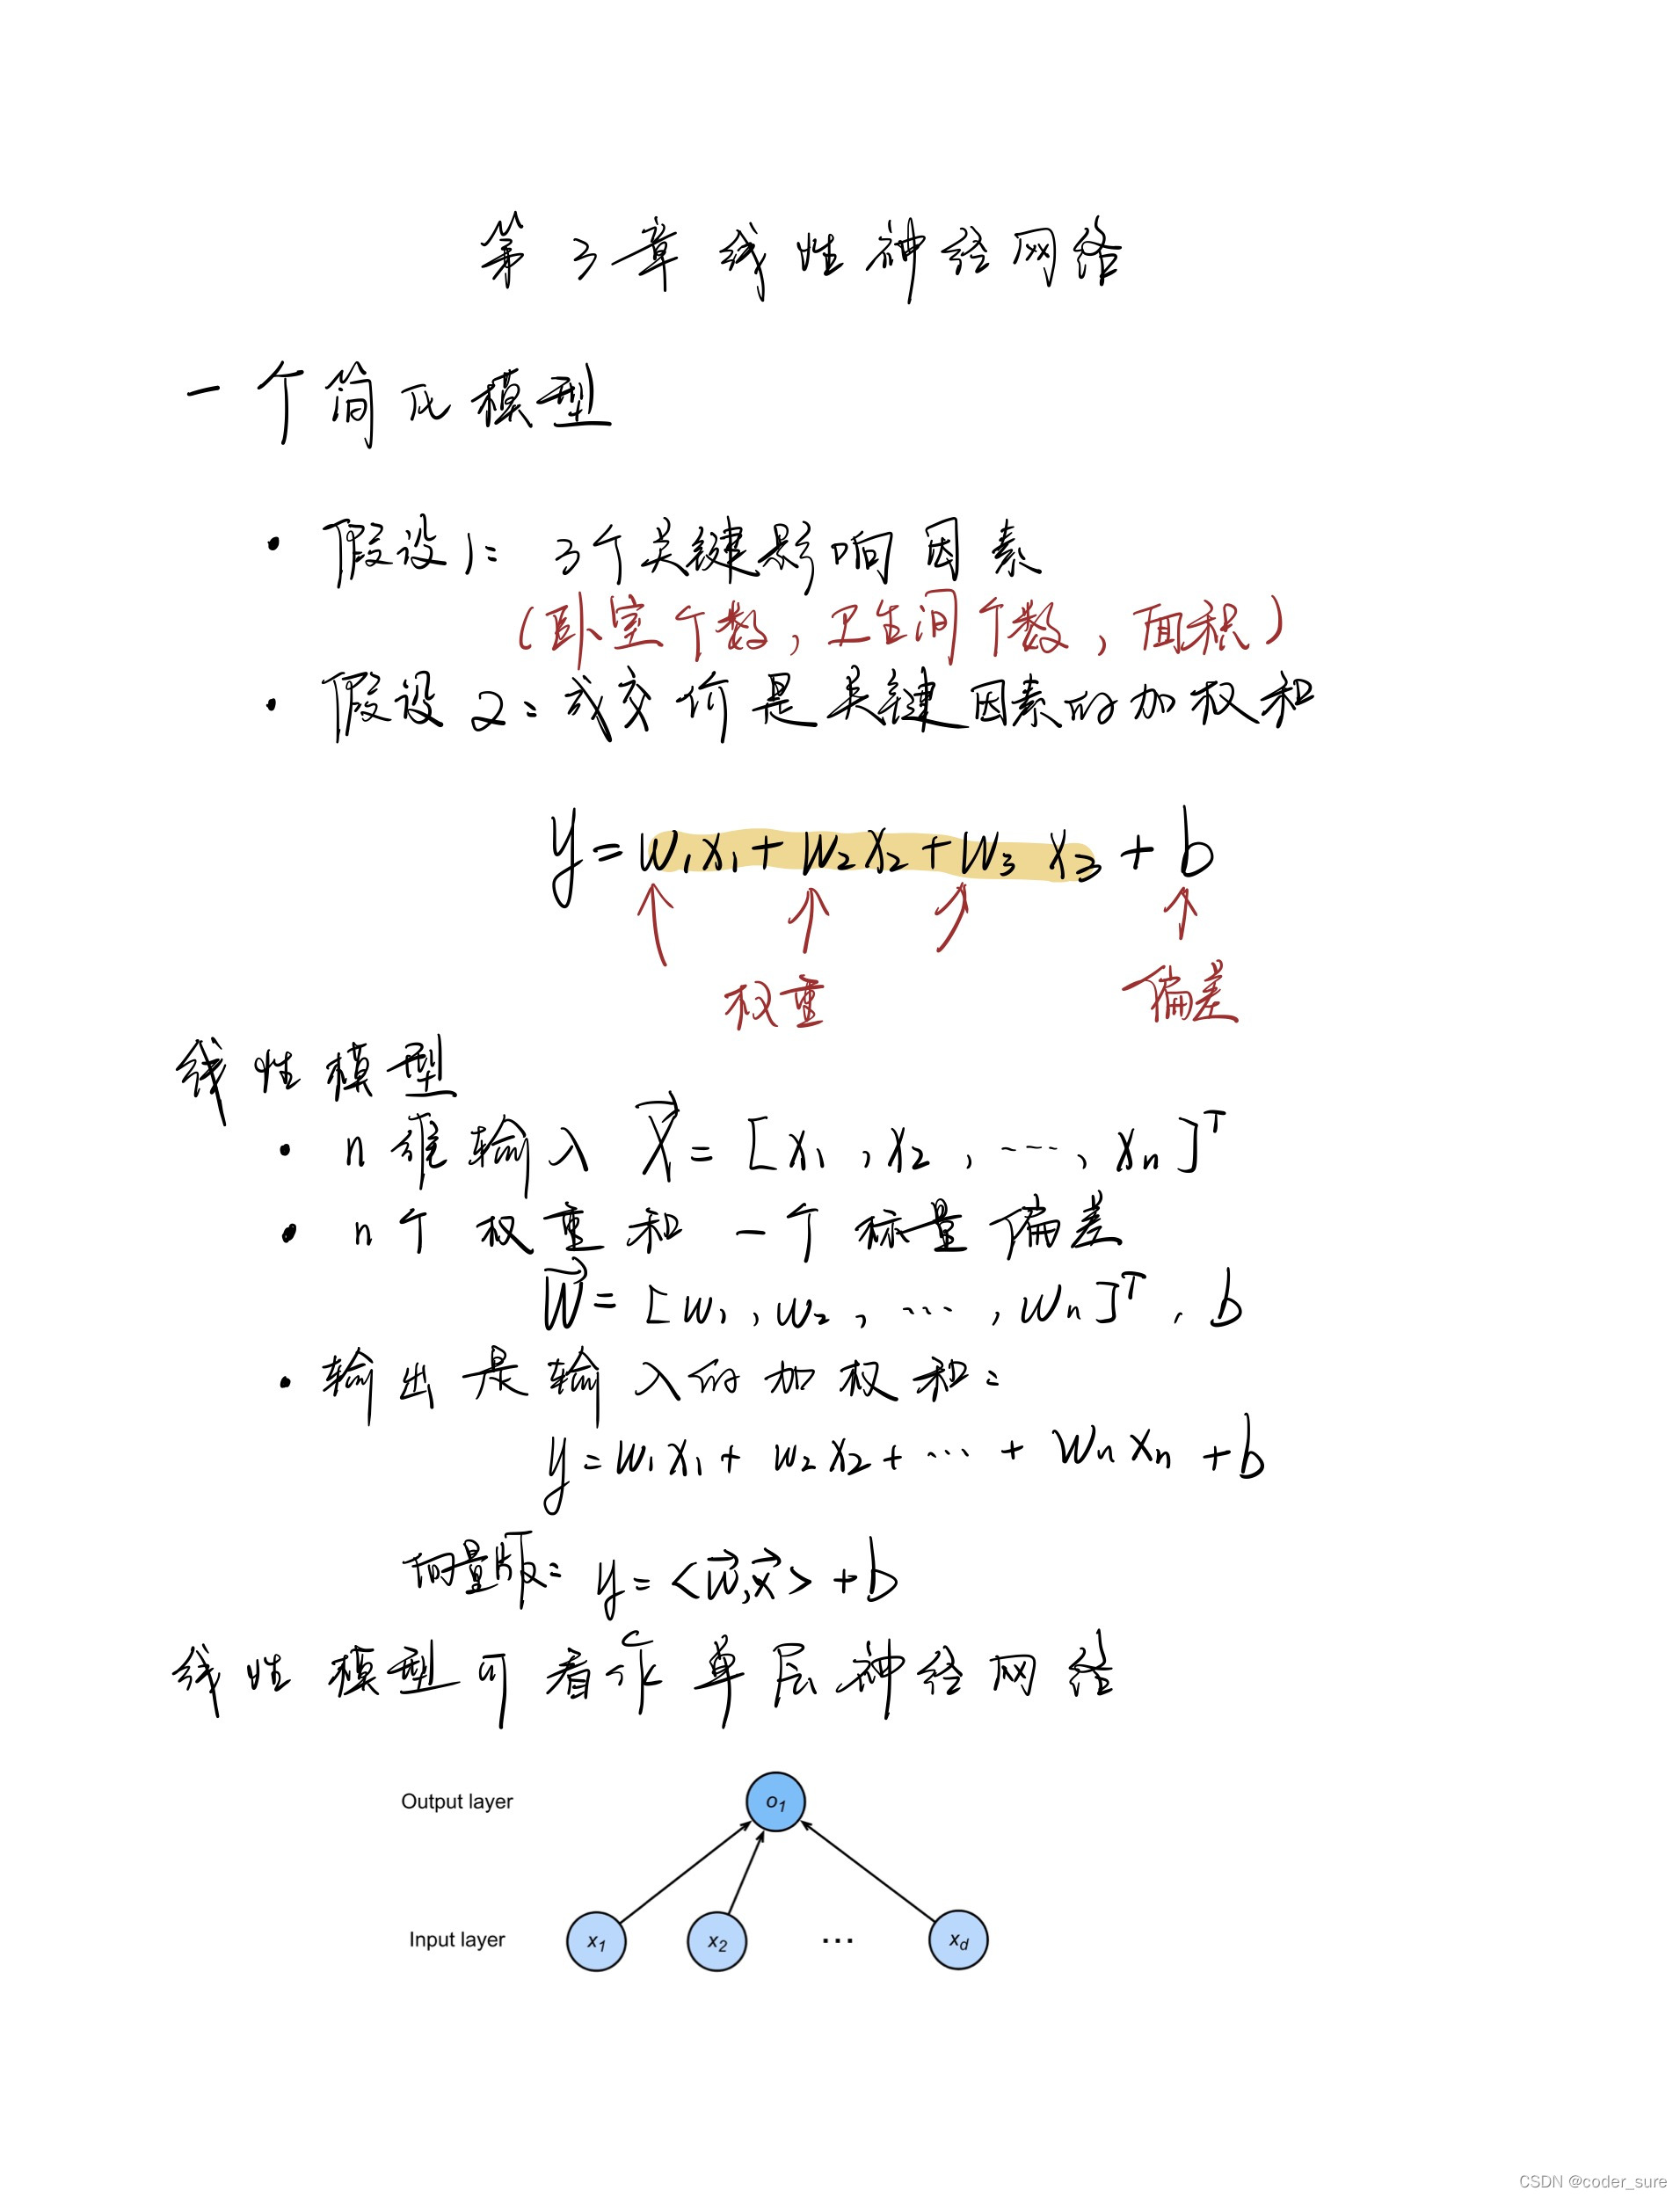 第3章线性神经网络
一个简化模型
• 假设1: 3个关键影响因素
(卧室个数, 卫生间个数, 面积)
• 假设2: 成交价是关键因素的加权和
y=w₁x₁+w₂x₂+w₃x₃+b
权重 偏差
线性模型
• n维输入 X⃗=[x₁,x₂,⋯,xₙ]ᵀ
• n个权重和一个标量偏差
W⃗=[w₁,w₂,⋯,wₙ]ᵀ, b
• 输出是输入的加权和:
y=w₁x₁+w₂x₂+⋯+wₙxₙ+b
向量版: y=<w⃗,x⃗>+b
线性模型可看作单层神经网络
Output layer o₁
Input layer x₁ x₂ ··· x_d
CSDN @coder_sure